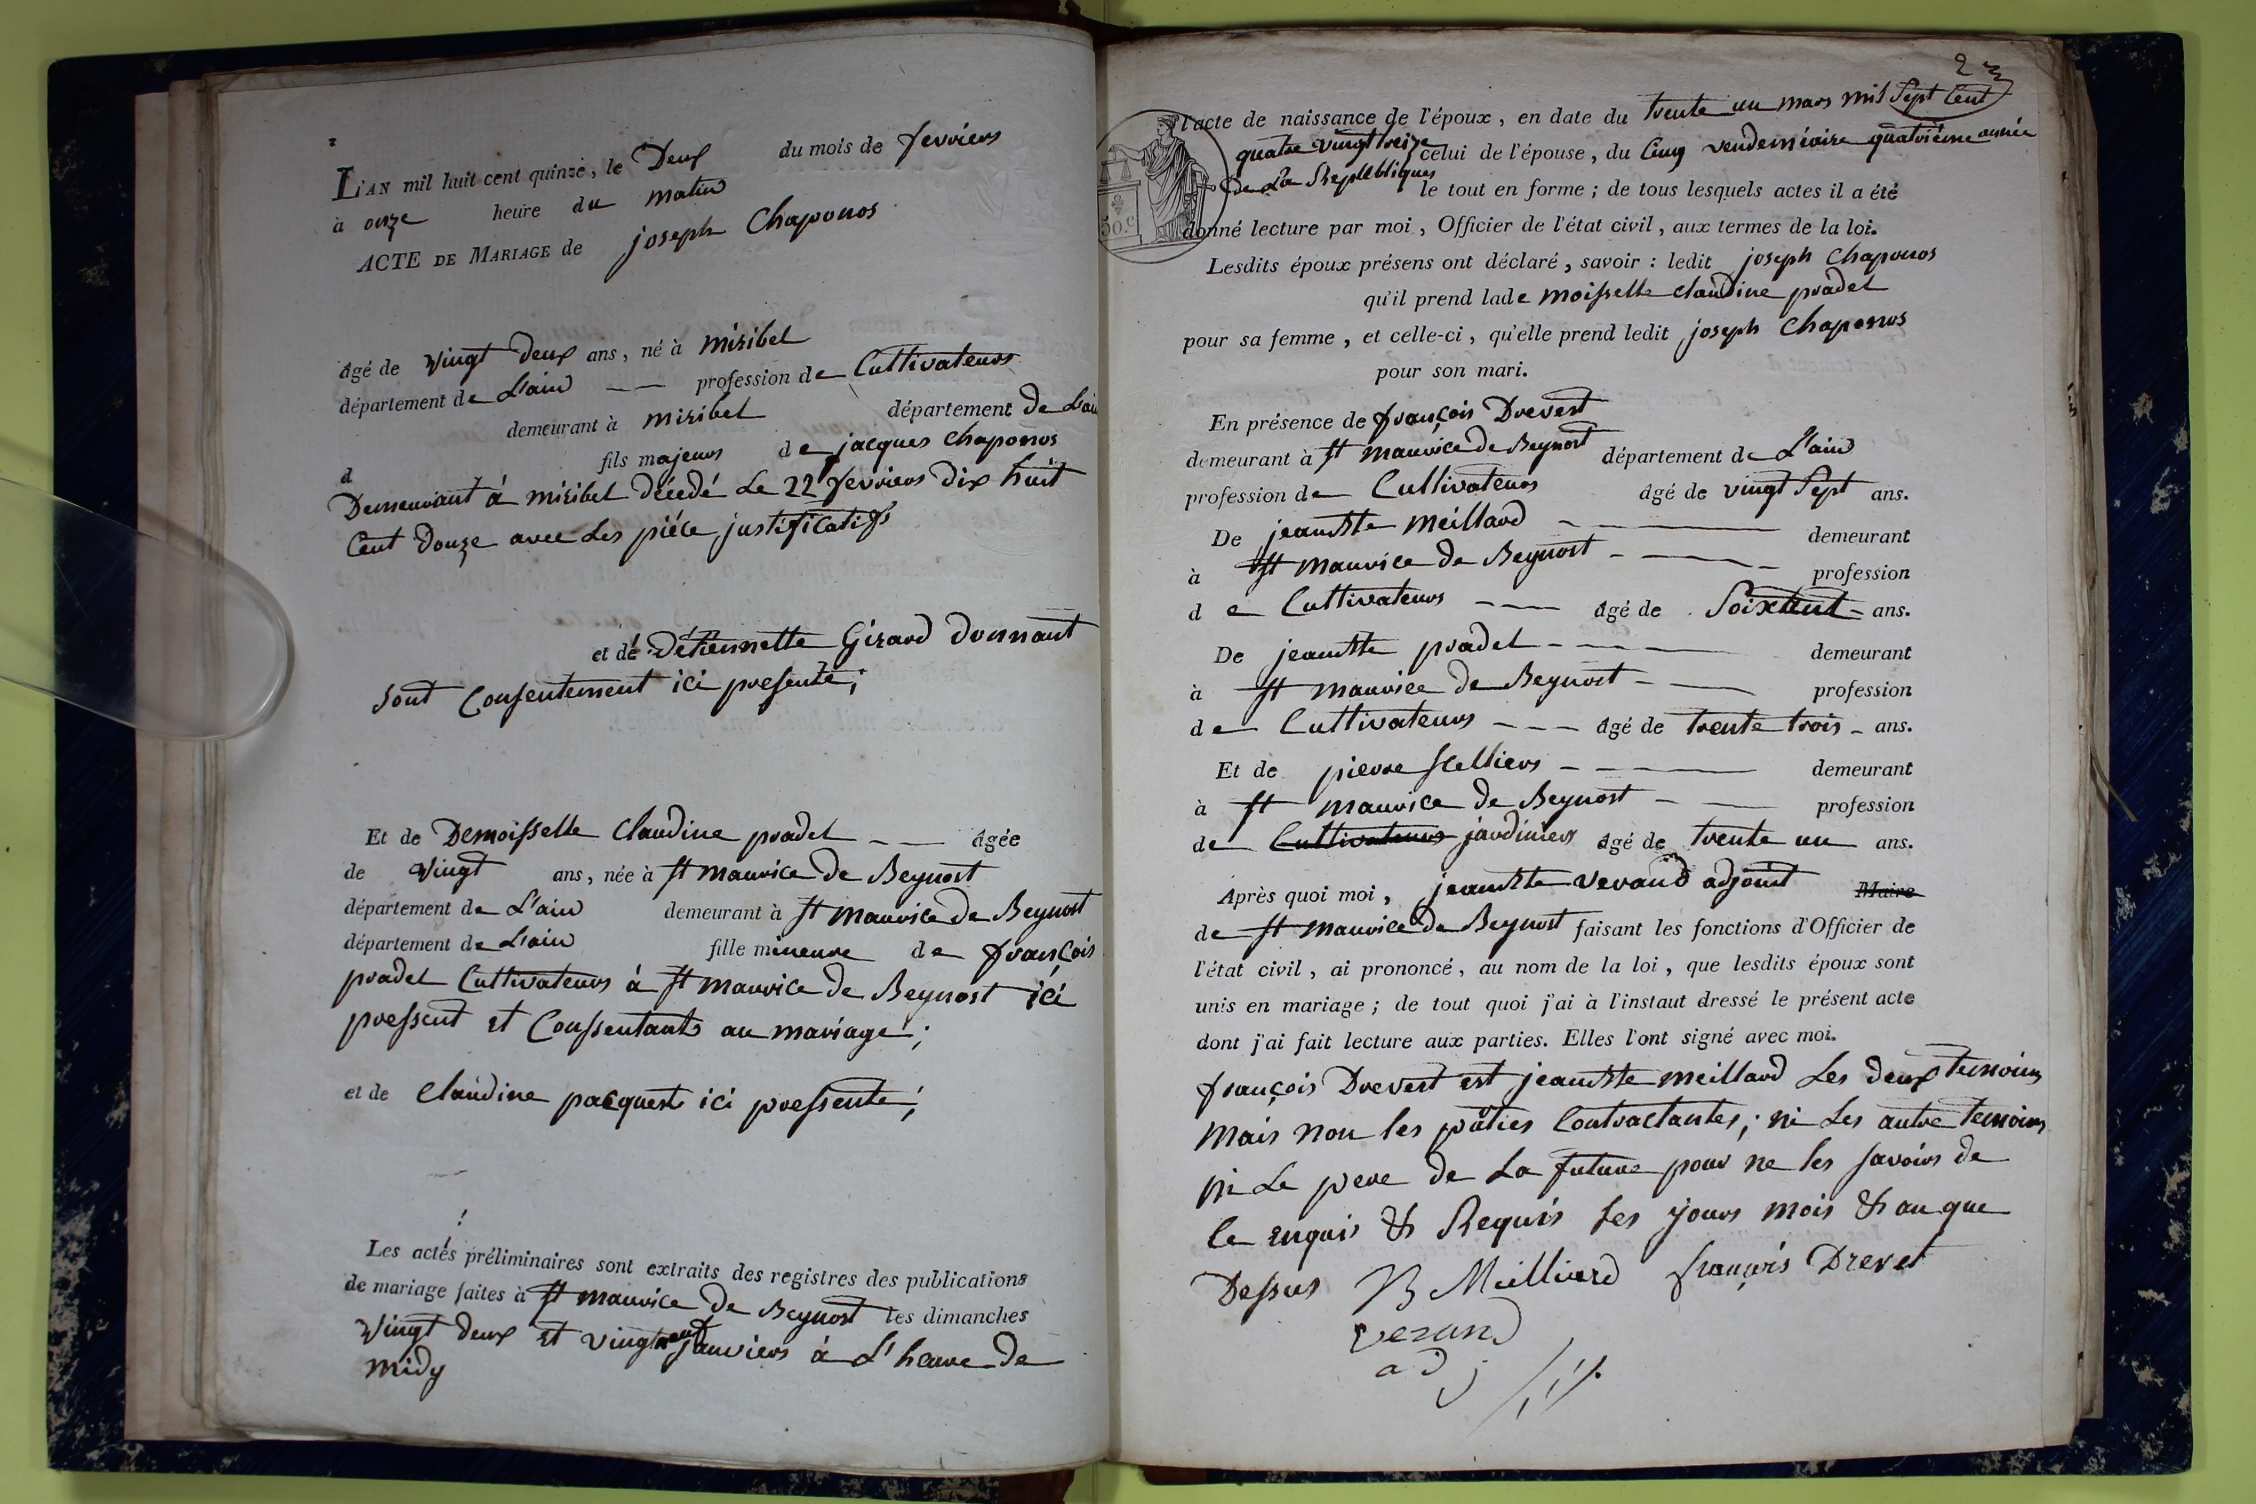 L'AN mil huit cent quinze, le Deux du mois de fevriers
à onze heure du matin
ACTE DE MARIAGE de joseph Chaponos
âgé de vingt deux ans, né à miribel
département de L'ain — — profession de Cultivateurs
demeurant à miribel département de L'ain
d fils majeurs de jacques chaponos
Demeurant á miribel décedé Le 22 fevriers dix huit
Cent douze avec Les piéce justificatifs
et dé détiennette Girard donnant
sont Consentement ici presente;
Et de Demoisselle Claudine pradel — — âgée
de vingt ans, née à st maurice de Beynost
département de L'ain demeurant à st maurice de Beynost
département de L'ain fille mineure de françois
pradel Cultivateurs á st maurice de Beynost ici
pressent et Conssentant au mariage;
et de Claudine pacquest ici pressente;
Les actes préliminaires sont extraits des registres des publications
de mariage faites à st maurice de Beynost les dimanches
vingt deux et vingt neuf janviers á L'heure de
midy
2
l'acte de naissance de l'époux, en date du trente un mars mil sept Cent
quatre vingt treize celui de l'épouse, du Cinq vendemiéaire quatriéme année
de La Republiques le tout en forme; de tous lesquels actes il a été
50.c
donné lecture par moi, Officier de l'état civil, aux termes de la loi.
Lesdits époux présens ont déclaré, savoir : ledit joseph Chaponos
qu'il prend lade moisselle claudine pradel
pour sa femme, et celle-ci, qu'elle prend ledit joseph Chaponos
pour son mari.
En présence de françois Drevest
demeurant à st maurice de Beynost département de L'ain
profession de Cultivateurs âgé de vingt Sept ans.
De jeanbte meillard — demeurant
à st maurice de Beynost — profession
d e Cultivateurs — âgé de Soixtent ans.
De jeanbte pradel — demeurant
à st maurice de Beynost — profession
de Cultivateurs — âgé de trente trois — ans.
Et de pierre scelliers — demeurant
à st maurice de Beynost — profession
de Cultivateurs jardiniers âgé de trente un ans.
Après quoi moi, jeanbte verand adjoint Maire
de st maurice de Beynost faisant les fonctions d'Officier de
l'état civil, ai prononcé, au nom de la loi, que lesdits époux sont
unis en mariage; de tout quoi j'ai à l'instaut dressé le présent acte
dont j'ai fait lecture aux parties. Elles l'ont signé avec moi.
françois Drevest est jeanbte meillard Les deux temoins
mais non les pâties Contractantes; ni Les autre temoins
ni Le pere de La future pour ne les savoirs de
Ce enquis & Requis Les jours mois & an que
Dessus JB Meilliard françois Drevet
verand
adj